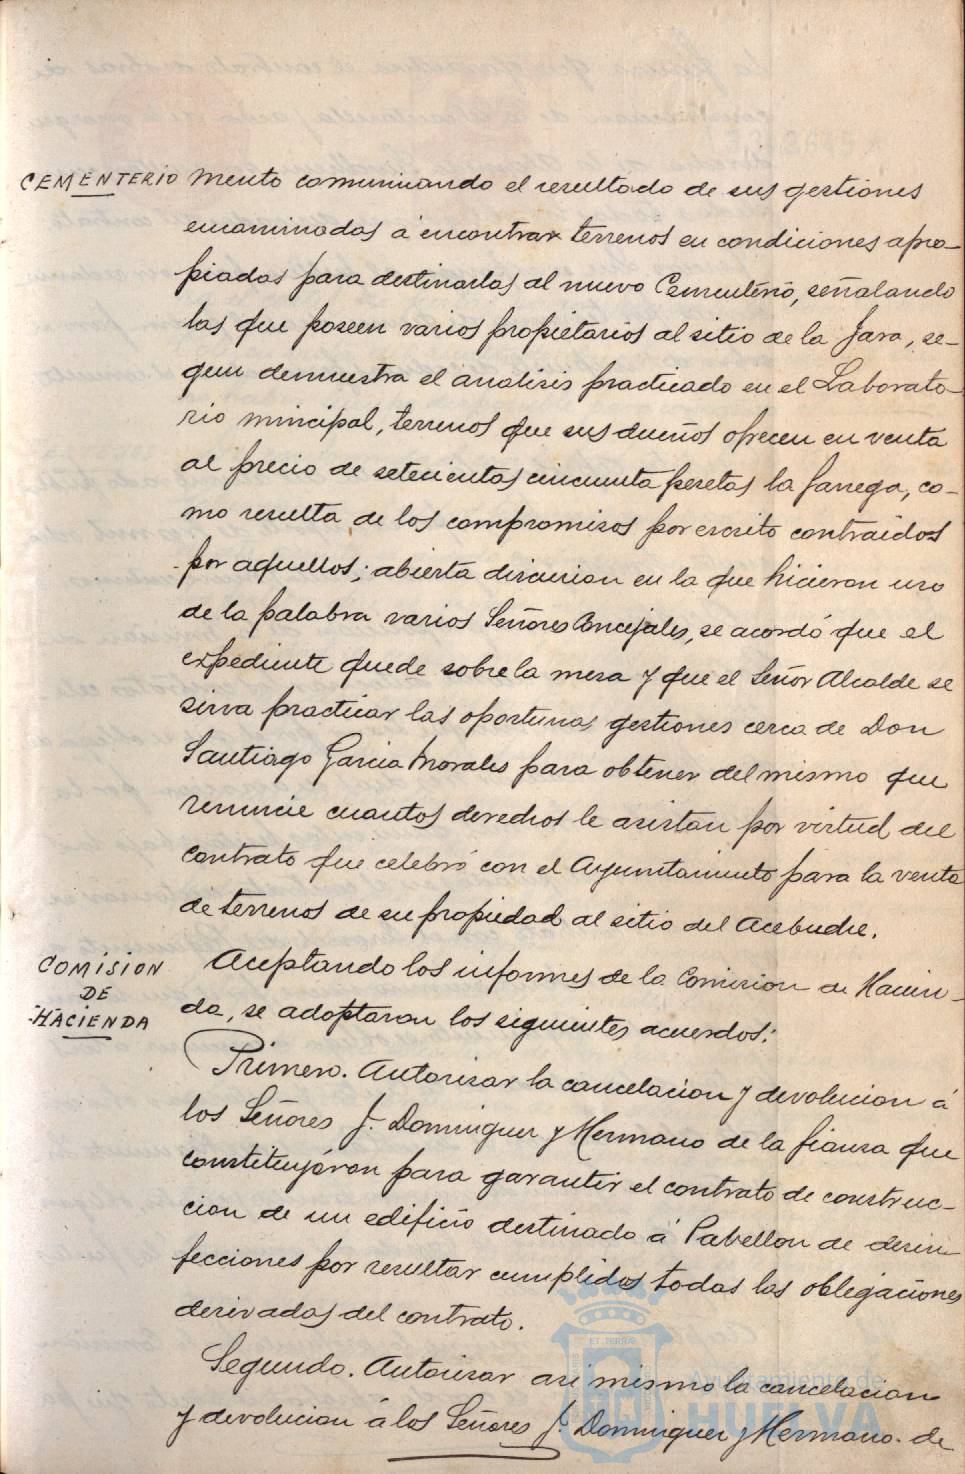 CEMENTERIO mento comunicando el resultado de sus gestiones
encaminadas á encontrar terrenos en condiciones apro-
piadas para destinarlas al nuevo Cementerio, señalando
las que poseen varios propietarios al sitio de la Jara, se-
gun demuestra el analisis practicado en el Laborato-
rio municipal, terrenos que sus dueños ofrecen en venta
al precio de setecientas cincuenta pesetas la fanega, co-
mo resulta de los compromisos por escrito contraidos
por aquellos; abierta discusion en la que hicieron uso
de la palabra varios Señores Concejales, se acordó que el
expediente quede sobre la mesa y que el Señor Alcalde se
sirva practicar las oportunas gestiones cerca de Don
Santiago Garcia Morales para obtener del mismo que
renuncie cuantos derechos le asistan por virtud del
contrato que celebró con el Ayuntamiento para la venta
de terrenos de su propiedad al sitio del Acebuche.
COMISION
DE
HACIENDA
Aceptando los informes de la Comision de Hacien-
da, se adoptaron los siguientes acuerdos:
Primero. Autorisar la cancelacion y devolucion á
los Señores J. Dominguez y Hermano de la fianza que
constituyéron para garantir el contrato de construc-
cion de un edificio destinado á Pabellon de desin
fecciones por resultar cumplidas todas las obligaciones
derivadas del contrato.
Segundo. Autorisar asi mismo la cancelacion
y devolucion á los Señores J. Dominguez y Hermano de
Ayuntamiento de
HUELVA